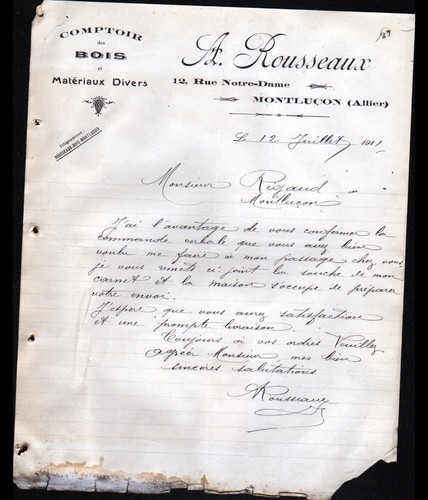 COMPTOIR
des
BOIS
et
Matériaux Divers
A. Rousseaux
12, Rue Notre-Dame
MONTLUÇON (Allier)
Télégrammes :
ROUSSEAUX-BOIS-MONTLUÇON
Le 12 Juillet 1911
Monsieur Rigaud à
Montluçon
J'ai l'avantage de vous confirmer la
commande verbale que vous avez bien
voulu me faire à mon passage chez vous
je vous remets ci-joint la souche de mon
carnet et la maison s'occupe de préparer
votre envoi.
J'espère que vous aurez satisfaction
et une prompte livraison.
Toujours à vos ordres Veuillez
agréer Monsieur, mes bien
sincères salutations
ARousseaux